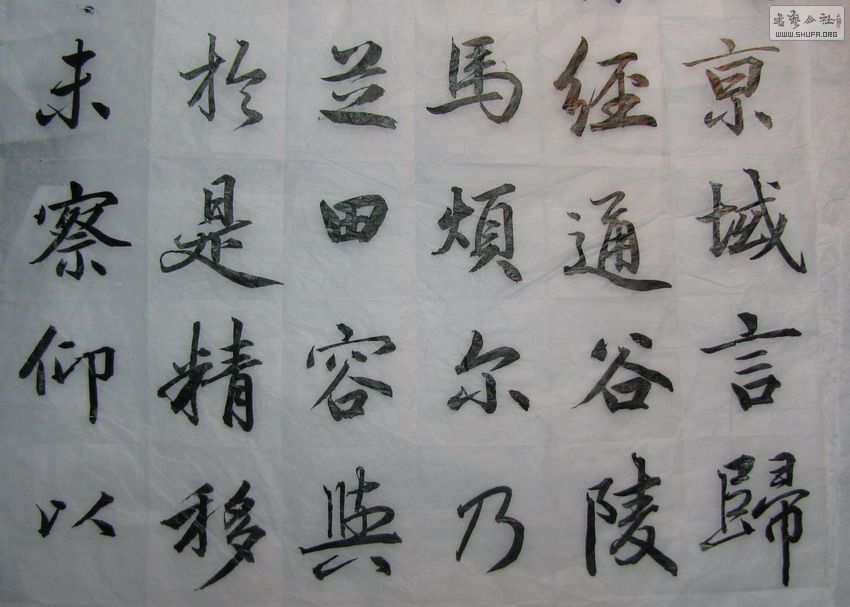 京域言歸
經通谷陵
馬煩尔乃
芝田容與
於是精移
未察仰以
書藝公社
WWW.SHUFA.ORG